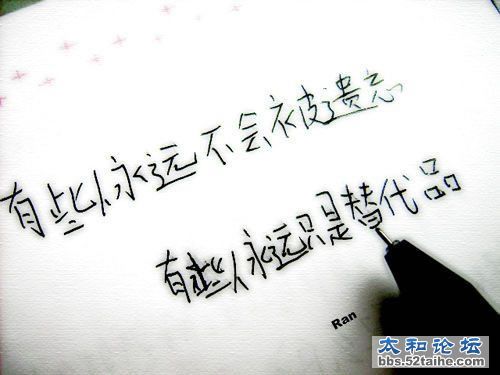 有些人永远不会被遗忘
有些人永远只是替代品
Ran
太和论坛
bbs.52taihe.com